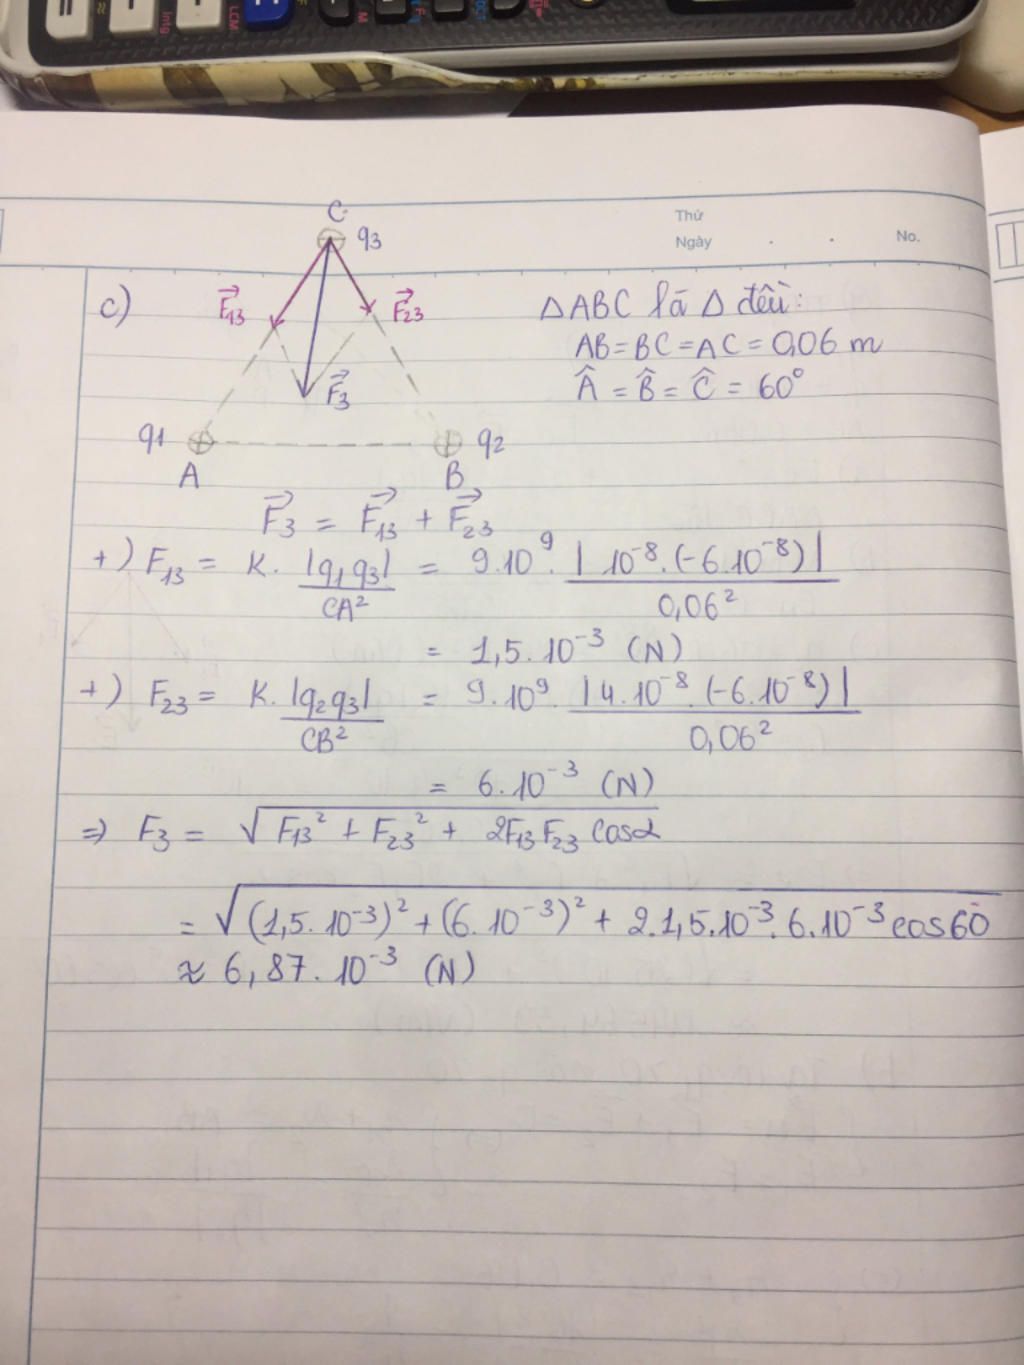 LCM
M
C
q3
Thứ
Ngày . . No.
c)
F⃗13
F⃗23
F⃗3
q1
A
q2
B
ΔABC là Δ đều:
AB = BC = AC = 0,06 m
Â = B̂ = Ĉ = 60°
F⃗3 = F⃗13 + F⃗23
+) F13 = K. |q1q3| / CA² = 9.10⁹. |10⁻⁸.(-6.10⁻⁸)| / 0,06²
= 1,5.10⁻³ (N)
+) F23 = K. |q2q3| / CB² = 9.10⁹. |4.10⁻⁸.(-6.10⁻⁸)| / 0,06²
= 6.10⁻³ (N)
=> F3 = √(F13² + F23² + 2F13F23 cosα)
= √((1,5.10⁻³)² + (6.10⁻³)² + 2.1,5.10⁻³.6.10⁻³ cos60)
≈ 6,87.10⁻³ (N)